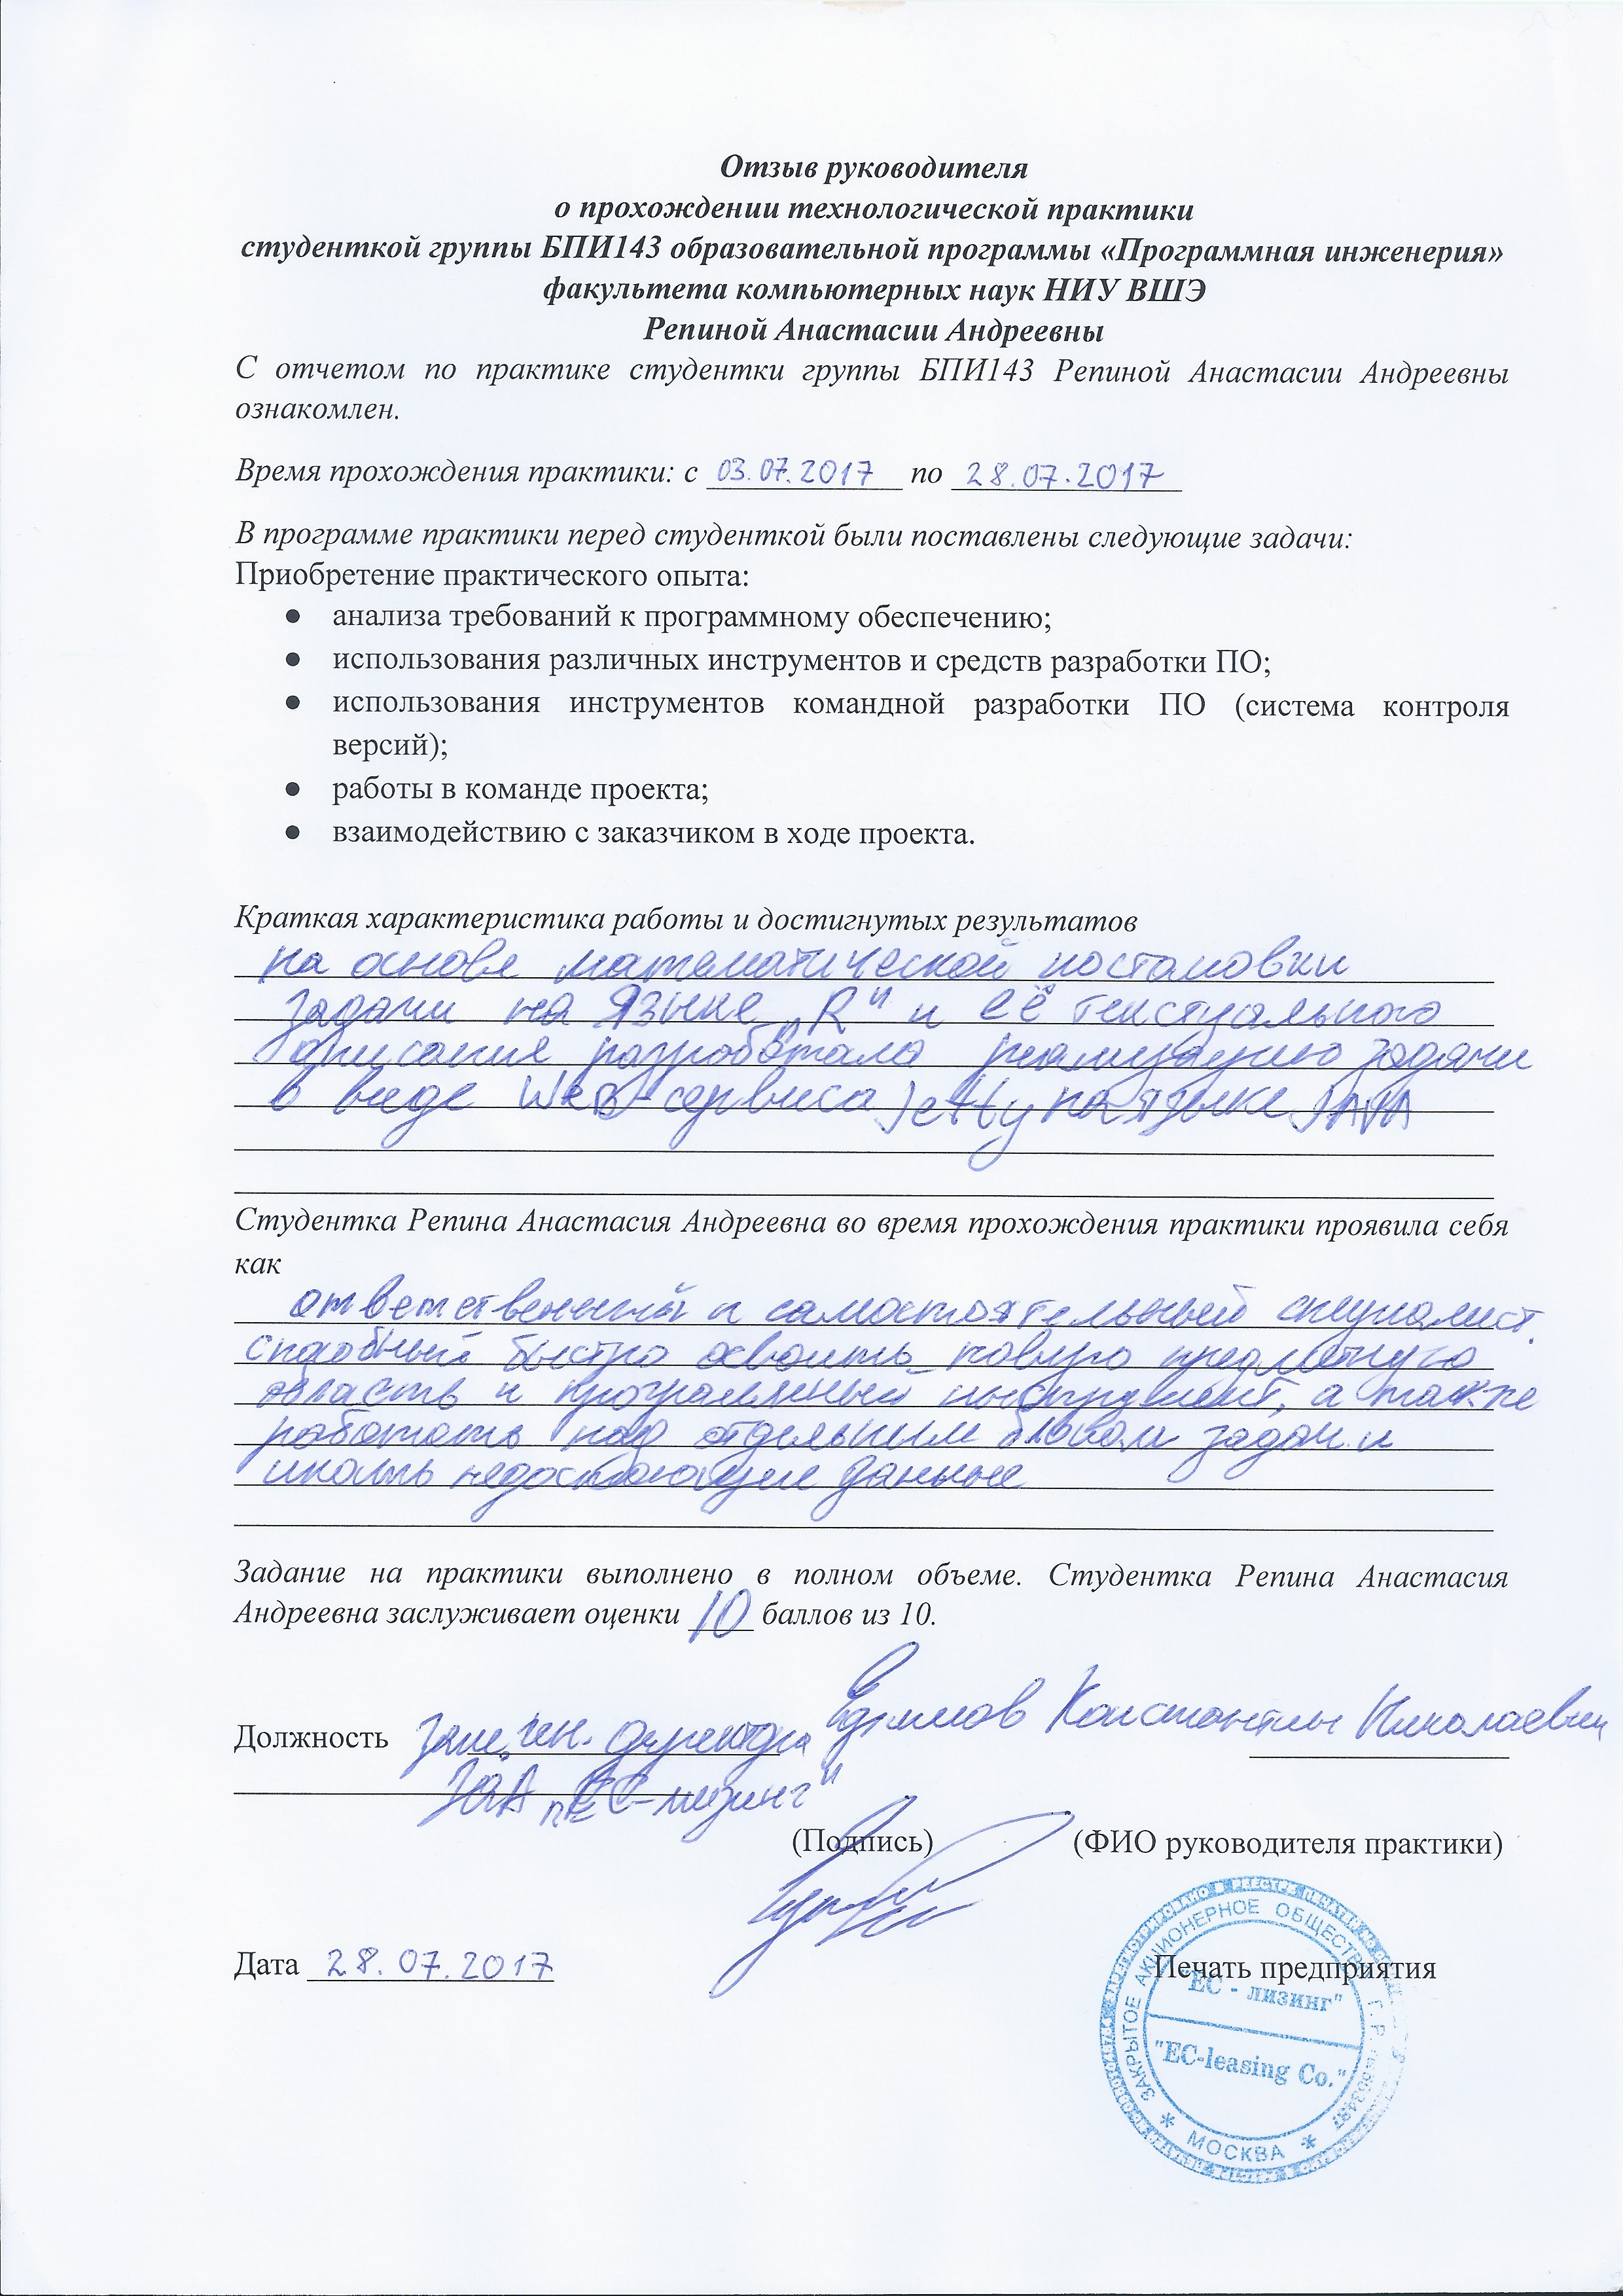 Отзыв руководителя
о прохождении технологической практики
студенткой группы БПИ143 образовательной программы «Программная инженерия»
факультета компьютерных наук НИУ ВШЭ
Репиной Анастасии Андреевны
С отчетом по практике студентки группы БПИ143 Репиной Анастасии Андреевны
ознакомлен.
Время прохождения практики: с 03.07.2017 по 28.07.2017
В программе практики перед студенткой были поставлены следующие задачи:
Приобретение практического опыта:
● анализа требований к программному обеспечению;
● использования различных инструментов и средств разработки ПО;
● использования инструментов командной разработки ПО (система контроля
версий);
● работы в команде проекта;
● взаимодействию с заказчиком в ходе проекта.
Краткая характеристика работы и достигнутых результатов
на основе математической постановки
задачи на языке „R" и её текстуального
описания разработала реализацию задачи
в виде Web-сервиса Jetty на языке JAVA
Студентка Репина Анастасия Андреевна во время прохождения практики проявила себя
как
ответственный и самостоятельный специалист,
способный быстро освоить новую предметную
область и программный инструмент, а также
работать над отдельным блоком задач и
искать недостающие данные
Задание на практики выполнено в полном объеме. Студентка Репина Анастасия
Андреевна заслуживает оценки 10 баллов из 10.
Должность Зам. ген. директора Константин Николаевич
ЗАО „ЕС-лизинг"
(Подпись) (ФИО руководителя практики)
Дата 28.07.2017 Печать предприятия
ЗАКРЫТОЕ АКЦИОНЕРНОЕ ОБЩЕСТВО
"ЕС - лизинг"
"EC-leasing Co."
* МОСКВА *